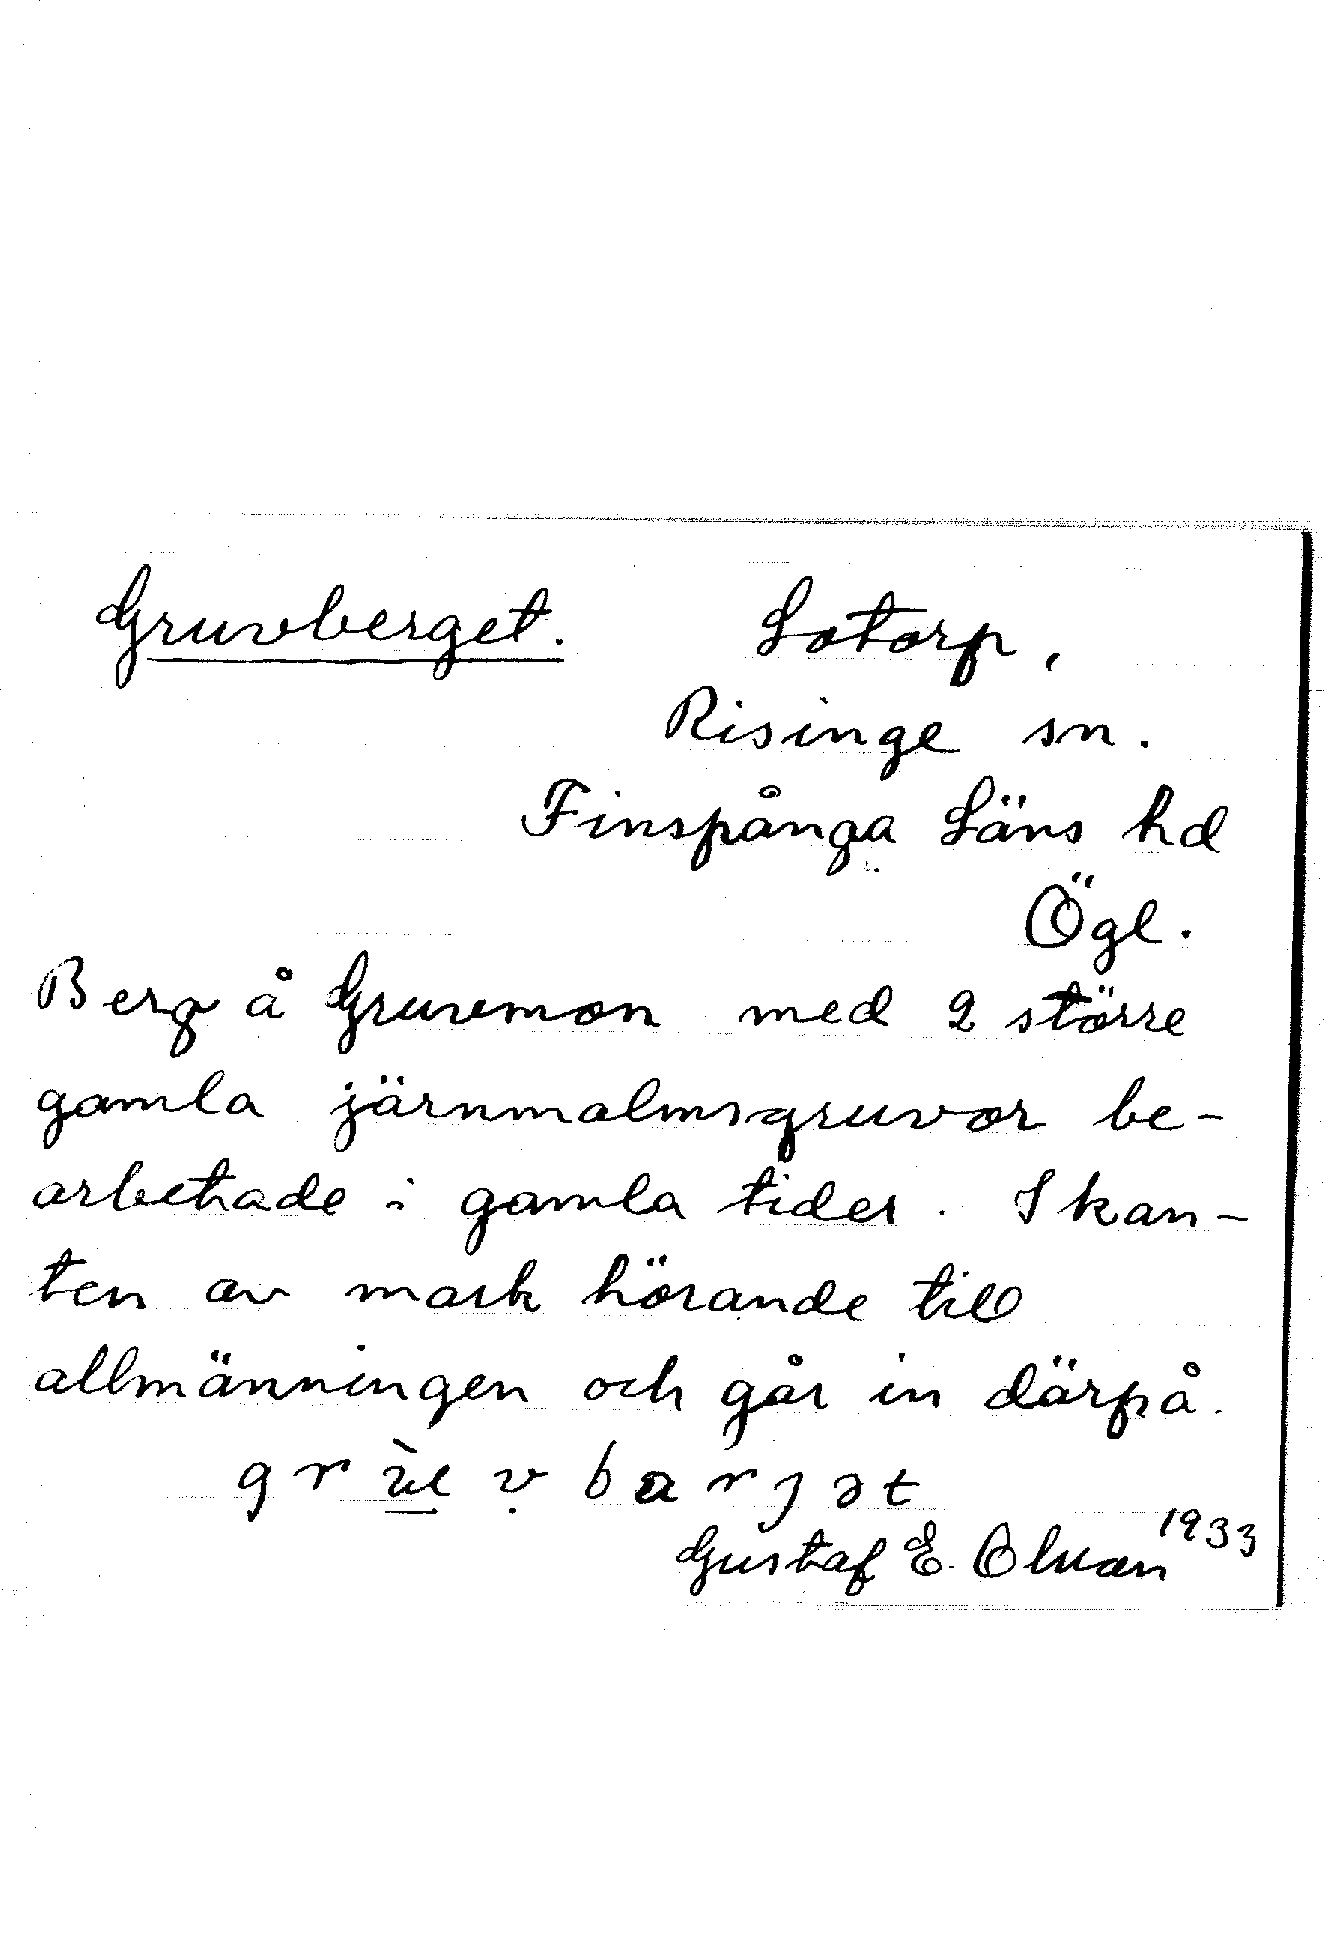 Gruvberget. Lotorp,
Risinge sn.
Finspånga Läns hd
Ögl.
Berg å Gruvmon med 2 större
gamla järnmalmsgruvor be-
arbetade i gamla tider. I kan-
ten av mark hörande till
allmänningen och går in därpå.
1933
Gustaf E.